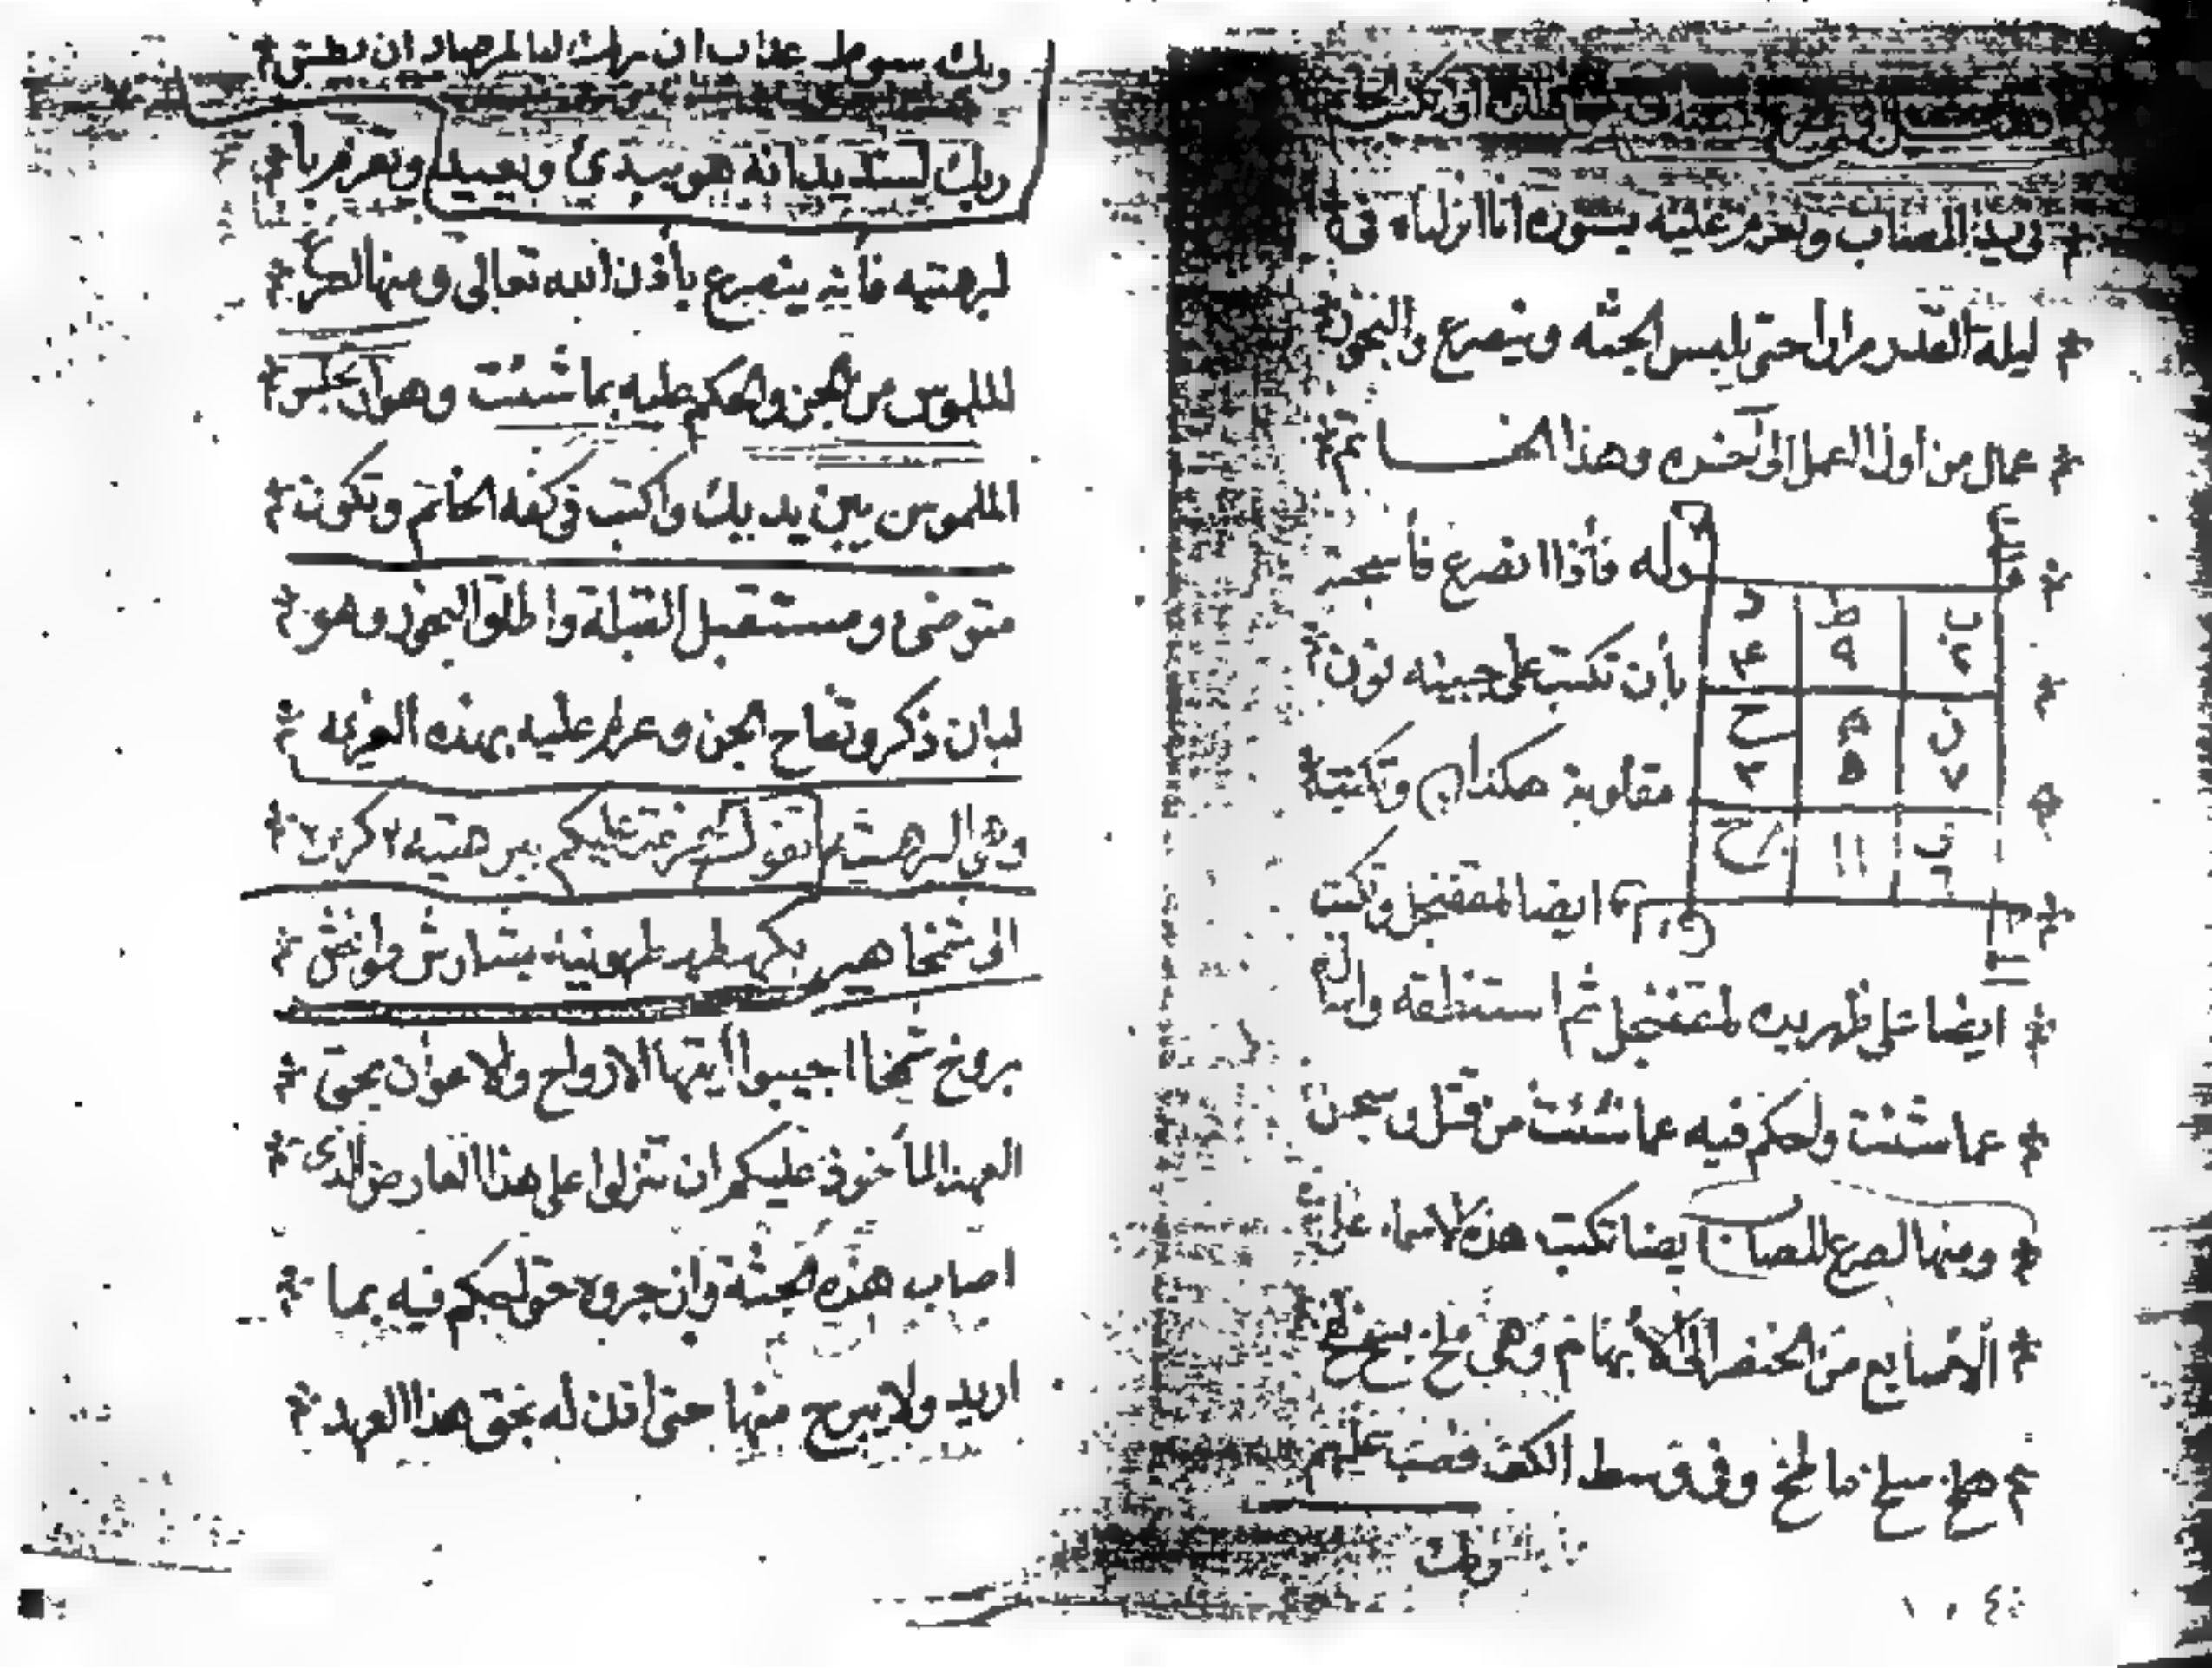 في يد المصاب وتعزم عليه بسورة انا انزلناه في
ليلة القدر مرارا حتى يلبس الجثه وينصرع والبخور
عمال من اول العمل الى آخره وهذا الخاتم
وله فأذا انصرع فأسجنه
بأن تكتب على جبينه نون
مقلوبة هكذا وتكتبه
ايضا لمقفنجل وتكتب
د ط ب
٤ ٩ ٢
ح ن
٣ ٥ ٧
ح ١١ ٦
ايضا على ظهر يده لمقفنجل ثم استنطقه واسأله
عما شئت واحكم فيه عما شئت من قتل وسجن
ومنها لصرع المصاب ايضا تكتب هذه الاسماء على
الاصابع من الخنصر الى الابهام وهي
هلخ سلخ مالخ وفي وسط الكف فصب عليهم
ربك
ربك سوط عذاب ان ربك لبالمرصاد ان بطش
ربك لشديد انه هو يبدئ ويعيد وتعزم بأ
لبرهتيه فأنه ينصرع بأذن الله تعالى ومنها لصرع
الملموس من الجن والحكم عليه بما شئت وهو أن تجلس
الملموس بين يديك واكتب في كفه الخاتم وتكون
متوضئ ومستقبل القبلة واطلق البخور وهو
لبان ذكر وتفاح الجن وعزم عليه بهذه العزيمه
وهي البرهتيه تقول عزمت عليكم ببرهتيه ٢ كرير ٢
الى شمخاهير بكهطهطهونيه بشارش طونش
شمخا اجيبوا أيتها الارواح والاعوان بحق
العهد المأخوذ عليكم ان تنزلوا على هذا العارض الذي
اصاب هذه الجثة وان جروه حتى احكم فيه بما
اريد ولا يبرح منها حتى أذن له بحق هذا العهد